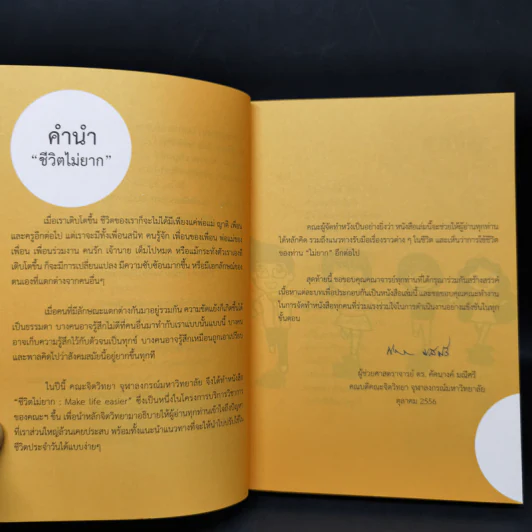 คำนำ
“ชีวิตไม่ยาก”
เมื่อเราเติบโตขึ้น ชีวิตของเราก็จะไม่ได้มีเพียงแค่พ่อแม่ ญาติ เพื่อน
และครูอีกต่อไป แต่เราจะมีทั้งเพื่อนสนิท คนรู้จัก เพื่อนของเพื่อน พ่อแม่ของ
เพื่อน เพื่อนร่วมงาน คนรัก เจ้านาย เต็มไปหมด หรือแม้กระทั่งตัวเราเองที่
เติบโตขึ้น ก็จะมีการเปลี่ยนแปลง มีความซับซ้อนมากขึ้น หรือมีเอกลักษณ์ของ
ตนเองที่แตกต่างจากคนอื่นๆ
เมื่อคนที่มีลักษณะแตกต่างกันมาอยู่ร่วมกัน ความขัดแย้งก็เกิดขึ้นได้
เป็นธรรมดา บางคนอาจรู้สึกไม่ดีที่คนอื่นมาทำกับเราแบบนั้นแบบนี้ บางคน
อาจเก็บความรู้สึกไว้กับตัวจนเป็นทุกข์ บางคนอาจรู้สึกเหมือนถูกเอาเปรียบ
และพาลคิดไปว่าสังคมสมัยนี้อยู่ยากขึ้นทุกที
ในปีนี้ คณะจิตวิทยา จุฬาลงกรณ์มหาวิทยาลัย จึงได้ทำหนังสือ
“ชีวิตไม่ยาก : Make life easier” ซึ่งเป็นหนึ่งในโครงการบริการวิชาการ
ของคณะฯ ขึ้น เพื่อนำหลักจิตวิทยามาอธิบายให้ผู้อ่านทุกท่านเข้าใจถึงปัญหา
ที่เราส่วนใหญ่ล้วนเคยประสบ พร้อมทั้งแนะนำแนวทางที่จะให้นำไปปรับใช้ใน
ชีวิตประจำวันได้แบบง่ายๆ
คณะผู้จัดทำหวังเป็นอย่างยิ่งว่า หนังสือเล่มนี้จะช่วยให้ผู้อ่านทุกท่าน
ได้หลักคิด รวมถึงแนวทางรับมือเรื่องราวต่าง ๆ ในชีวิต และเห็นว่าการใช้ชีวิต
ของท่าน “ไม่ยาก” อีกต่อไป
สุดท้ายนี้ ขอขอบคุณคณาจารย์ทุกท่านที่ได้กรุณาร่วมกันสร้างสรรค์
เนื้อหาแต่ละบทเพื่อประกอบกันเป็นหนังสือเล่มนี้ และขอขอบคุณคณะทำงาน
ในการจัดทำหนังสือทุกคนที่ร่วมแรงร่วมใจในการดำเนินงานอย่างแข็งขันในทุก
ขั้นตอน
ผู้ช่วยศาสตราจารย์ ดร. คัคนางค์ มณีศรี
คณบดีคณะจิตวิทยา จุฬาลงกรณ์มหาวิทยาลัย
ตุลาคม 2556